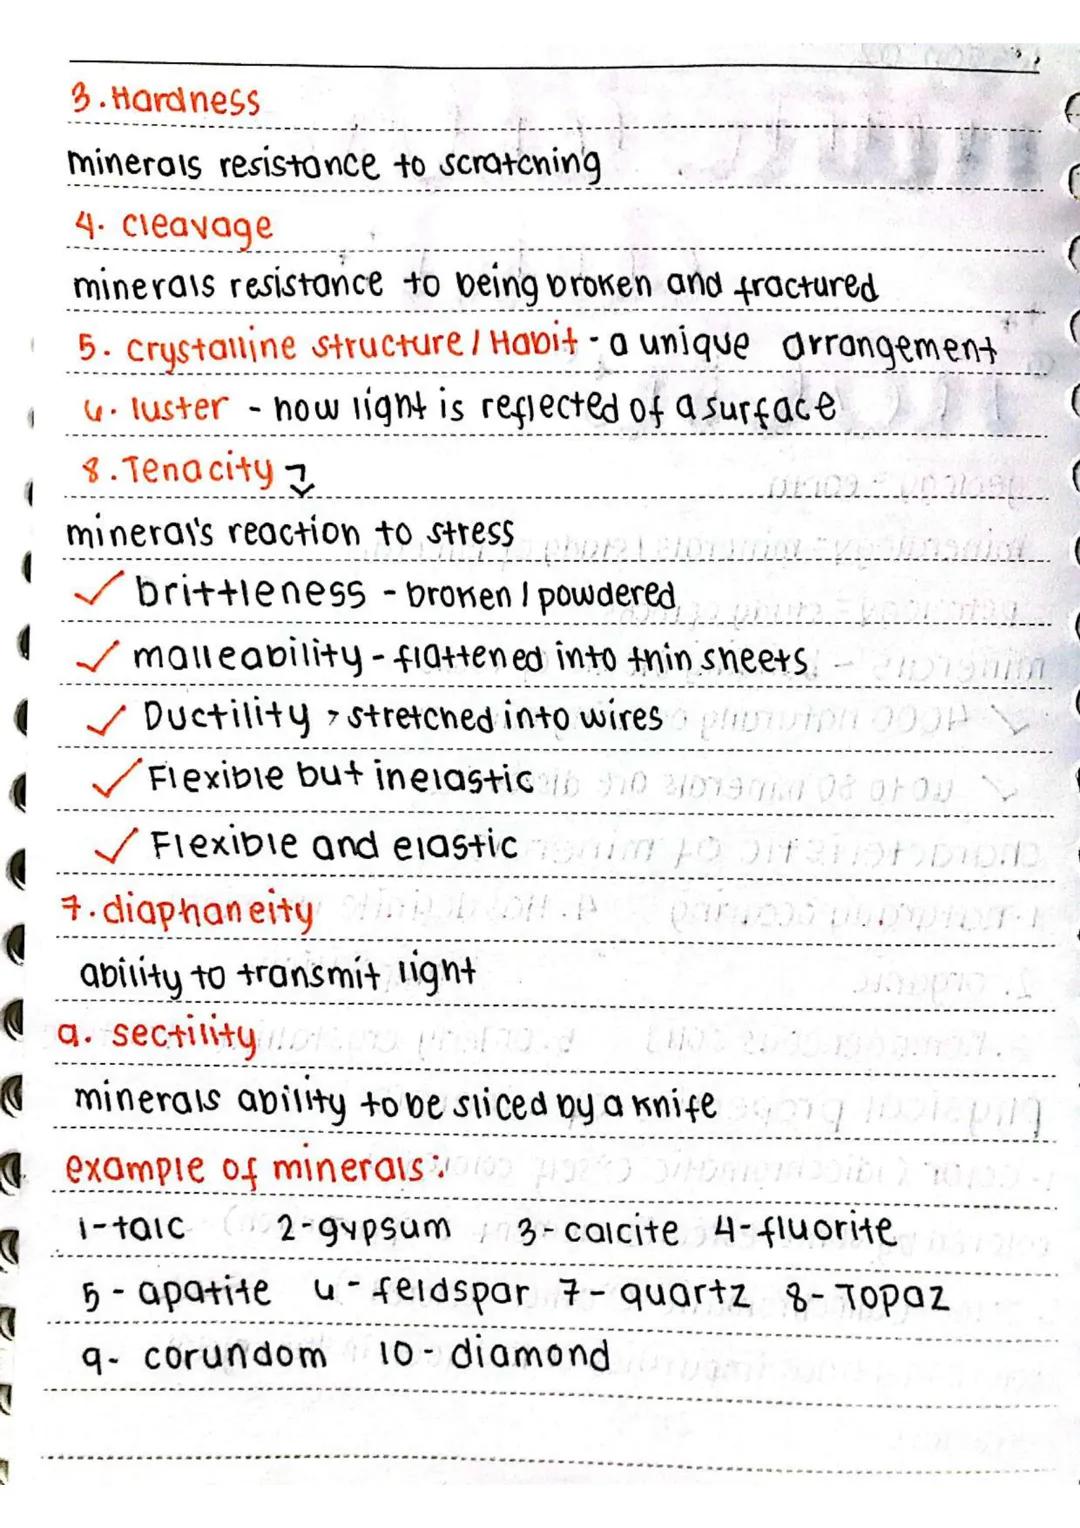 3. Hardness
minerals resistance to scratching
4. cleavage
minerals resistance to being broken and fractured
5. crystalline structure / Habit - a unique arrangement
6. luster - how light is reflected of a surface
8. Tenacity
mineral's reaction to stress
✓ brittleness - broken / powdered
✓ malleability - flattened into thin sheets
✓ Ductility > stretched into wires
✓ Flexible but inelastic
✓ Flexible and elastic
7. diaphaneity
ability to transmit light
9. sectility
minerals ability to be sliced by a knife
example of minerals:
1-talc 2-gypsum 3-calcite 4-fluorite
5-apatite 6-feldspar 7-quartz 8-Topaz
9-corundom 10-diamond